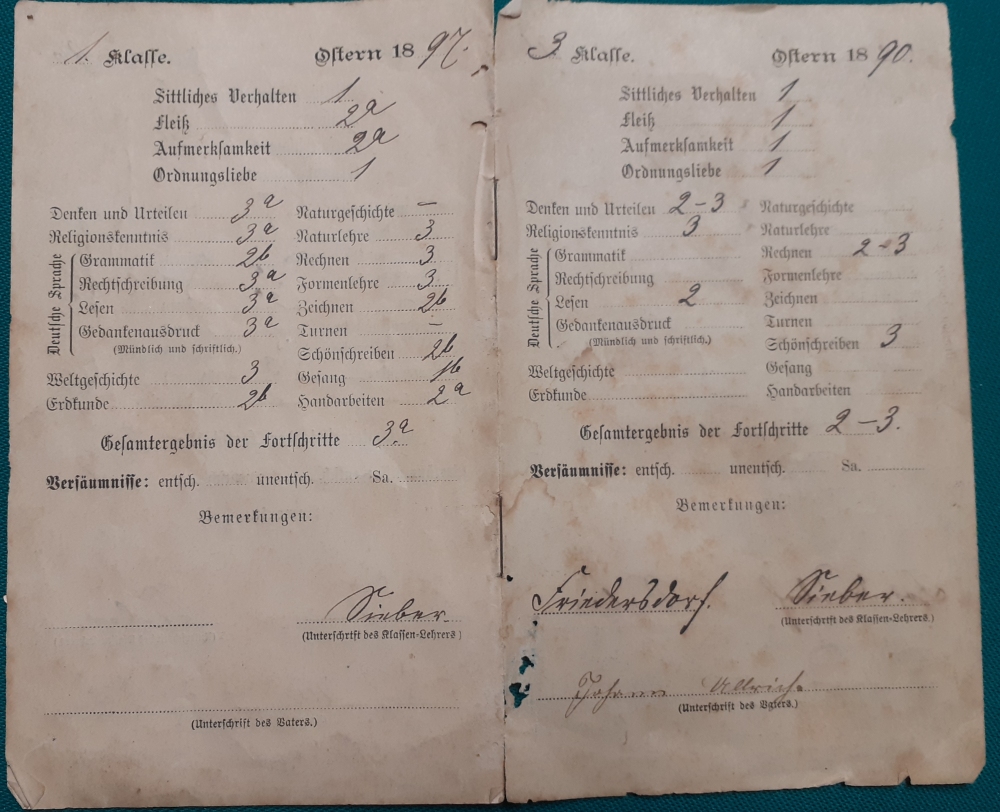 1. Klasse. Ostern 1897.
Sittliches Verhalten 1
Fleiß 2a
Aufmerksamkeit 2a
Ordnungsliebe 1
Denken und Urteilen 3a
Religionskenntnis 3a
Deutsche Sprache
Grammatik 2b
Rechtschreibung 3a
Lesen 3a
Gedankenausdruck 3a
(Mündlich und schriftlich.)
Weltgeschichte 3
Erdkunde 2b
Naturgeschichte –
Naturlehre 3
Rechnen 3
Formenlehre 3
Zeichnen 2b
Turnen –
Schönschreiben 2b
Gesang 1b
Handarbeiten 2a
Gesamtergebnis der Fortschritte 3a
Versäumnisse: entsch. unentsch. Sa.
Bemerkungen:
Sieber
(Unterschrift des Klassen-Lehrers)
(Unterschrift des Vaters.)
3 Klasse. Ostern 1890.
Sittliches Verhalten 1
Fleiß 1
Aufmerksamkeit 1
Ordnungsliebe 1
Denken und Urteilen 2–3
Religionskenntnis 3
Deutsche Sprache
Grammatik
Rechtschreibung
Lesen 2
Gedankenausdruck
(Mündlich und schriftlich.)
Weltgeschichte
Erdkunde
Naturgeschichte
Naturlehre
Rechnen 2–3
Formenlehre
Zeichnen
Turnen
Schönschreiben 3
Gesang
Handarbeiten
Gesamtergebnis der Fortschritte 2–3.
Versäumnisse: entsch. unentsch. Sa.
Bemerkungen:
Friedersdorf. Sieber.
(Unterschrift des Klassen-Lehrers.)
Johann Ullrich.
(Unterschrift des Vaters.)